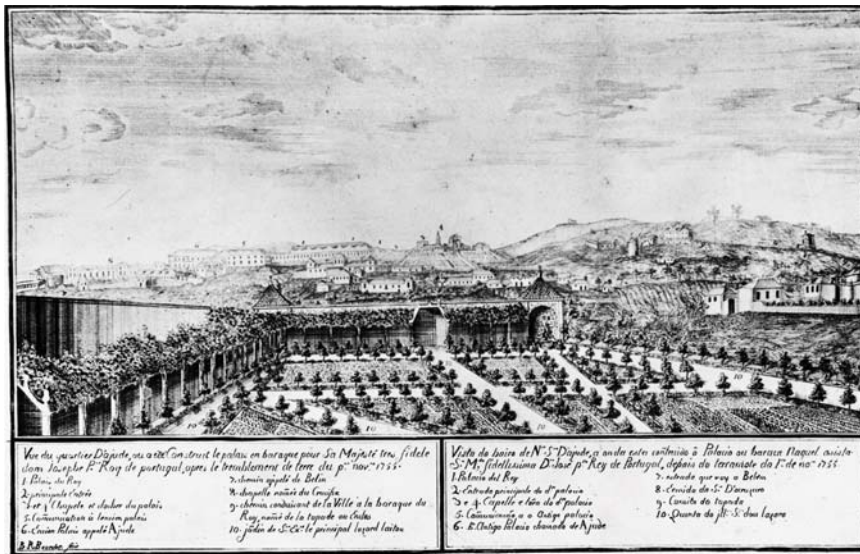 10
10
10
Vue du quartier D'ajude, ou a eté Construit le palais en baraque pour Sa Majesté tres fidele
dom Josephe Pr. Roy de portugal, apres le tremblement de terre du pr. novre. 1755.
1. Palais du Roy
2. principale Entrée
3 et 4 Chapelle et clocher du palais
5. Communication à lancien palais
6. Lancien Palais appellé Ajude
7. chemin appelé de Belin
8. chapelle nomée du Crusifix
9. chemin conduisant de la Ville à la baraque du
Roy, nomé de la tapade ou
10. jardin de principal lazard
fic
Vista do bairo de Nª. Sª. Dajude, a onde esta contruido o Palacio ou baraca Naquel
S. Mde. fidelissima D. José pr. Rey de Portugal, depois do terramote da 1ª. de nov. 1755
1. Palacio del Rey
2. Entrada principale do do. palacio
3 e 4. Capelle e tore do do. palacio
5. Comunicação a o Antigo palacio
6. E. Antigo Palacio chamado de Ajude
7. estrada que vay a Belem
8. Ermida da
9. Caminho da tapada
10. Quinta do dom lazaro